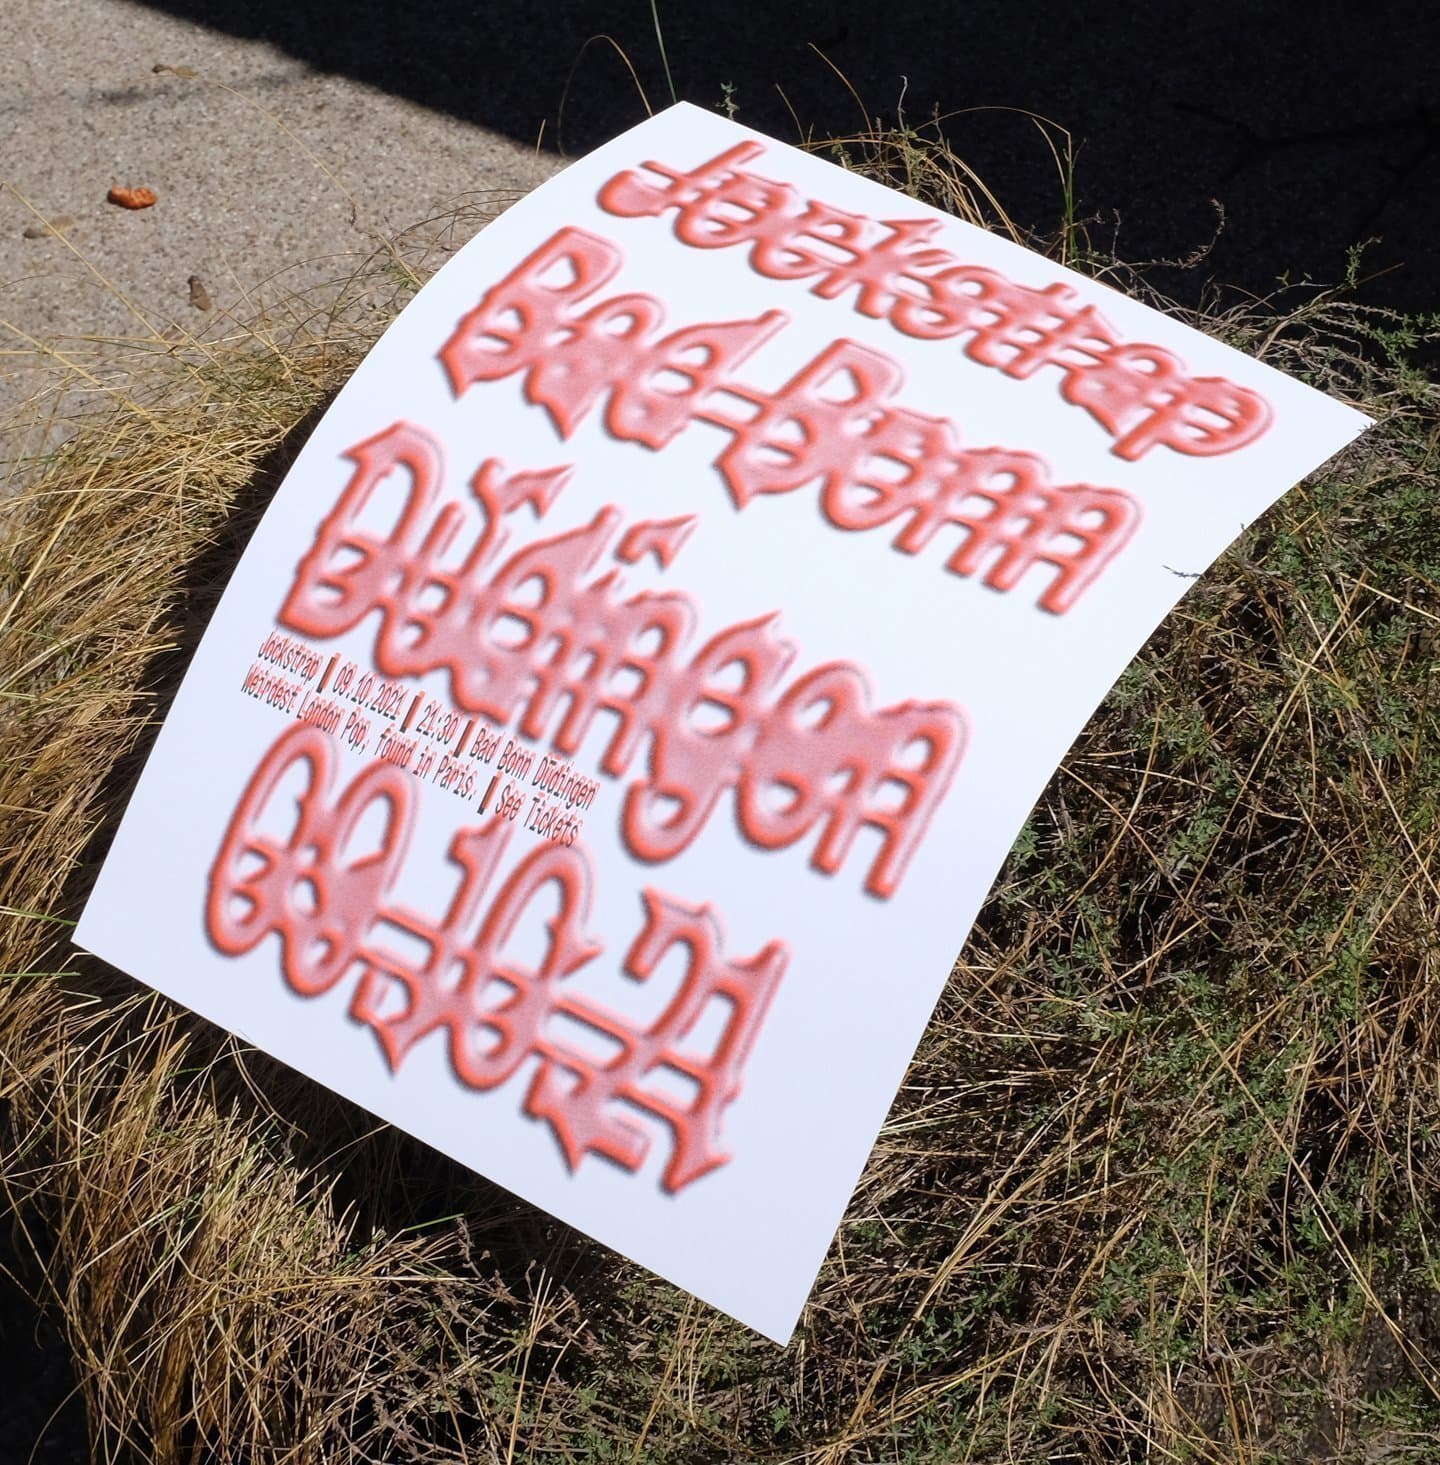 Jockstrap
Bad-Bonn
Düdingen
Jockstrap ❚ 09.10.2021 ❚ 21:30 ❚ Bad Bonn Düdingen
Weirdest London Pop, found in Paris. ❚ See Tickets
09.10.21